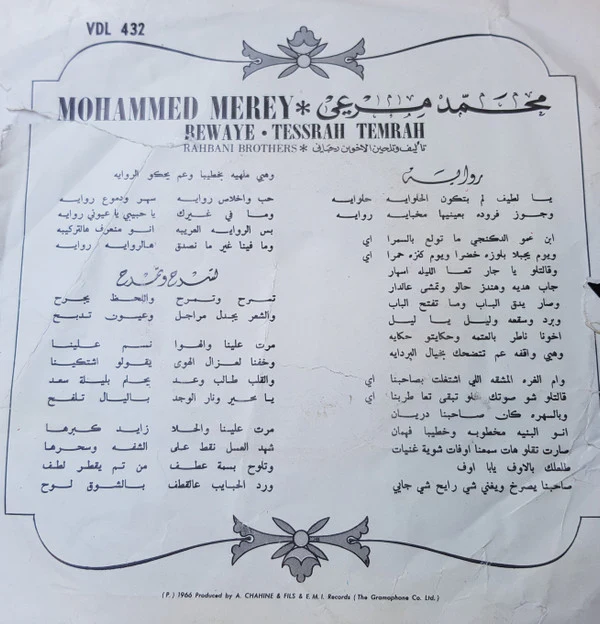 VDL 432
MOHAMMED MEREY * محمّد مرعي
REWAYE • TESSRAH TEMRAH
RAHBANI BROTHERS * تأليف وتلحين الاخوين رحباني
روايــة
يــا لطيف لم بتكون الحلوايــه حلوايه
وجــوز فروده بعينيها مخبايه روايه
ابن عمو الدكنجي ما تولع بالسمرا اي
ويوم يجبلا بلوزه خضرا ويوم كنزه حمرا اي
وقالتلو يا جار تعا الليله اسهار
جاب هديه وهندز حالو وتمشى عالدار
وصار يدق الباب وما تفتح الباب
وبرد وسقعه وليل يــا ليل
اخونا ناطر بالعتمه وحكايتو حكايه
وهيي واقفه عم تتضحك بخيال البردايه
وام الغره المشقه اللي اشتغلت بصاحبنا اي
قالتلو شو صوتك حلو تبقى تعا طربنا اي
وبالسهره كان صاحبنا دريـان
انـو البنيه مخطوبه وخطيبا فهمان
صارت تقلو هات سمعنا اوفات شوية غنيات
طلعلك بالاوف يابا اوف
صاحبنا يصرخ ويغني شي رايح شي جايي
وهيي ملهيه بخطيبا وعم يحكو الروايه
حب واخلاص روايه سهر ودموع روايه
وما في غيرك روايه يا حبيبي يا عيوني روايه
بس الروايه الغريبه انـو منعرف هالتركيبه
وما فينا غير ما نصدق هالروايه روايه
تسرح وتمرح
تسرح وتمرح واللحظ يجرح
والشعر يجدل مراجل وعيــون تدبــح
مرت علينا والهــوا نسم علينــا
وخفنا لعــزال الهوى يقولو اشتكينــا
والقلب طالب وعــد يحلم بليلــة سعد
يــا حبير ونار الوجد باليال تلفــح
مرت علينا والحلا زايد كبرهــا
شهد العسل نقط على الشفه وسحرهـا
وتلوح بسمة عطــف من تم يقطر لطف
ورد الحبايب عالقطف بـالشوق لـوح
(P.) 1966 Produced by A. CHAHINE & FILS & E.M.I. Records (The Gramophone Co. Ltd.)